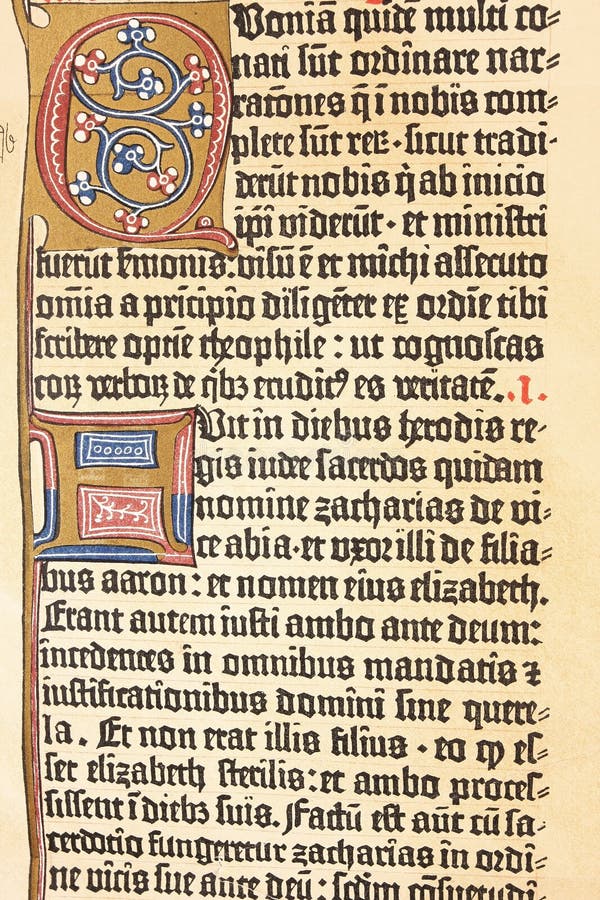 Uoniā quidē multi co=
nati sūt ordinare nar=
ratōnes q̄ i nobis com=
plete sūt reꝝ · sicut tradi=
derūt nobis q̇ ab inicio
ip̄i viderūt · et ministri
fuerūt s̄monis: visū ē et michi assecuto
om̄ia a pricipio diligēter ex ordīe tibi
scribere optīe theophile : ut cognoscas
eoꝝ verboꝝ de q̇bꝫ eruditꝰ es veritatē. .I.
Fuit in diebus herodis re=
gis iudee sacerdos quidam
nomine zacharias de vi=
ce abia · et uxor illi de filia=
bus aaron : et nomen eius elizabeth.
Erant autem iusti ambo ante deum:
incedentes in omnibus mandatis ⁊
iustificationibus domini sine quere=
la. Et non erat illis filius · eo ꝙ es=
set elizabeth sterilis: et ambo proces=
sissent ī diebꝫ suis. Factū est aūt cū sa=
cerdotio fungeretur zacharias in ordi=
ne vicis sue ante deū : scd̄m cōsuetudi=